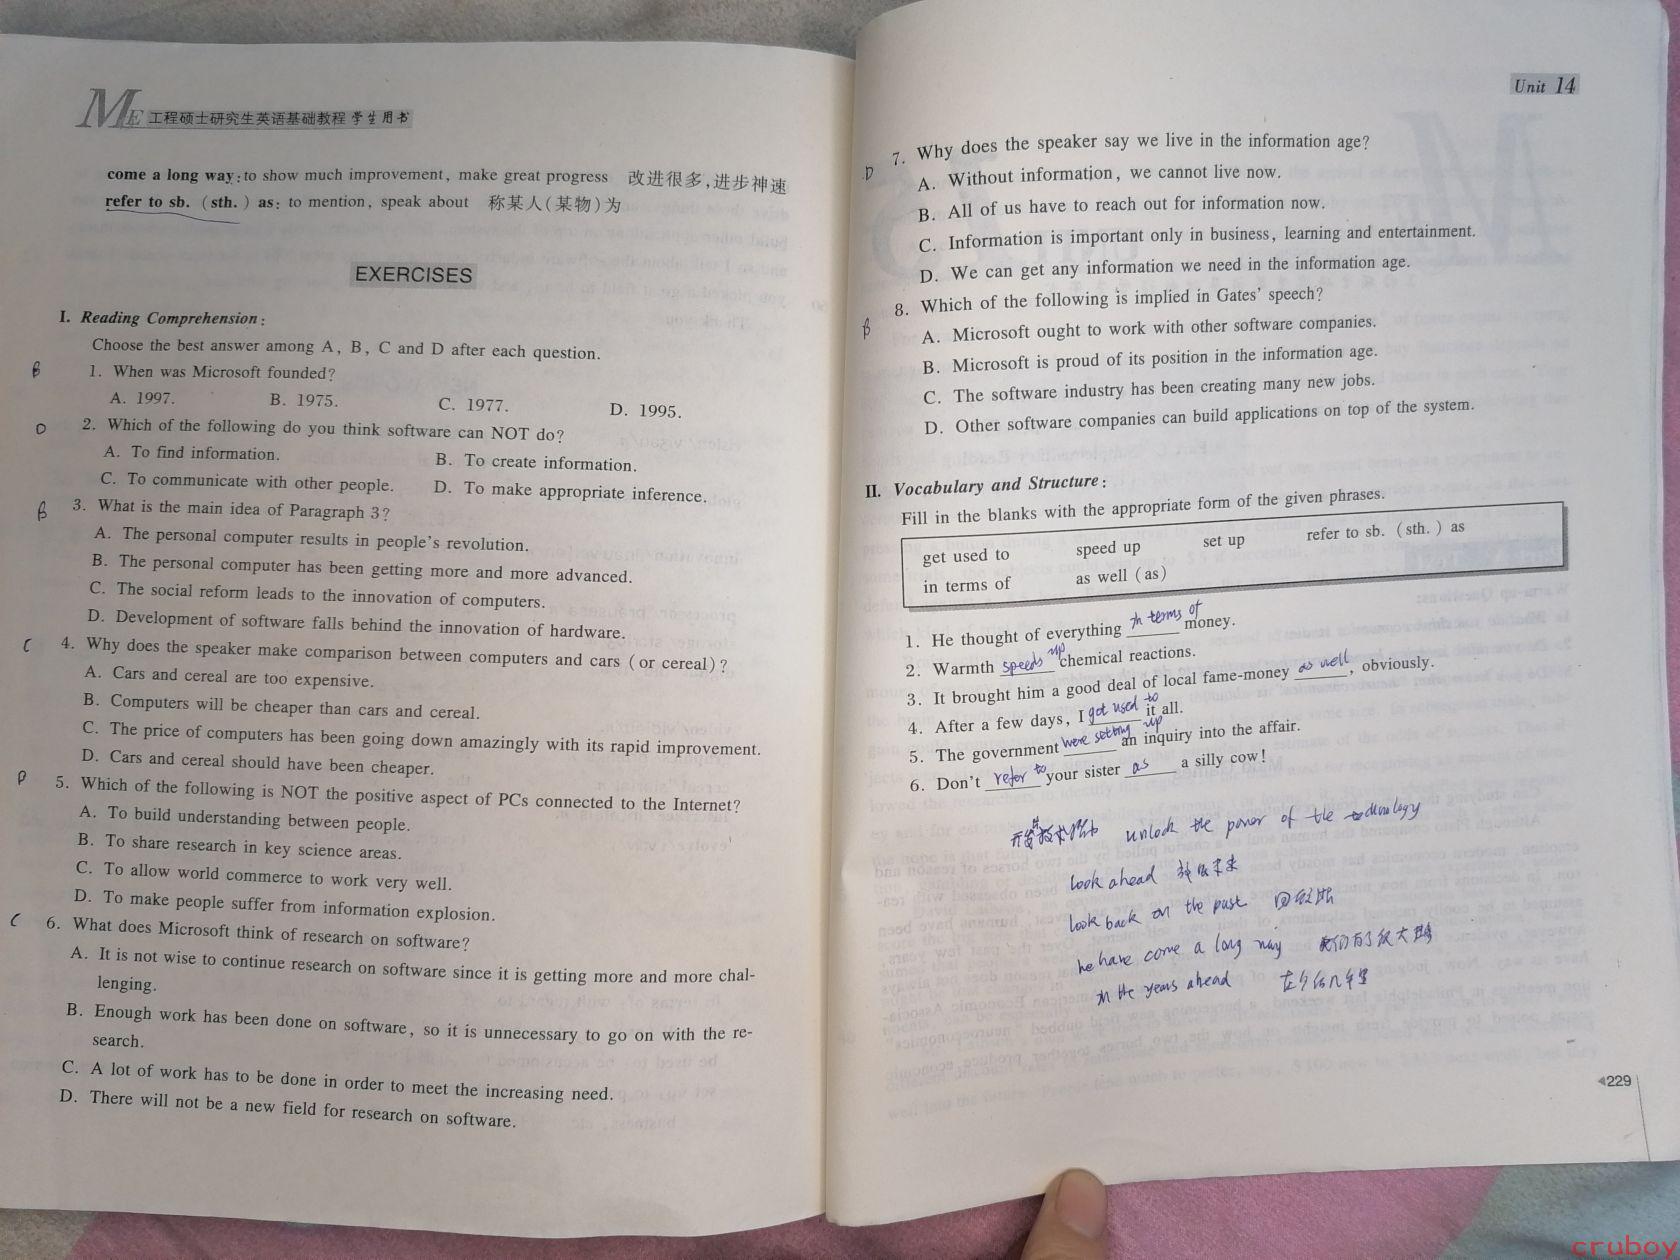 ME 工程硕士研究生英语基础教程 学生用书
come a long way: to show much improvement, make great progress 改进很多,进步神速
refer to sb. (sth.) as: to mention, speak about 称某人(某物)为
EXERCISES
I. Reading Comprehension:
Choose the best answer among A, B, C and D after each question.
B 1. When was Microsoft founded?
A. 1997. B. 1975. C. 1977. D. 1995.
D 2. Which of the following do you think software can NOT do?
A. To find information. B. To create information.
C. To communicate with other people. D. To make appropriate inference.
B 3. What is the main idea of Paragraph 3?
A. The personal computer results in people's revolution.
B. The personal computer has been getting more and more advanced.
C. The social reform leads to the innovation of computers.
D. Development of software falls behind the innovation of hardware.
C 4. Why does the speaker make comparison between computers and cars (or cereal)?
A. Cars and cereal are too expensive.
B. Computers will be cheaper than cars and cereal.
C. The price of computers has been going down amazingly with its rapid improvement.
D. Cars and cereal should have been cheaper.
D 5. Which of the following is NOT the positive aspect of PCs connected to the Internet?
A. To build understanding between people.
B. To share research in key science areas.
C. To allow world commerce to work very well.
D. To make people suffer from information explosion.
C 6. What does Microsoft think of research on software?
A. It is not wise to continue research on software since it is getting more and more chal-
lenging.
B. Enough work has been done on software, so it is unnecessary to go on with the re-
search.
C. A lot of work has to be done in order to meet the increasing need.
D. There will not be a new field for research on software.
Unit 14
D 7. Why does the speaker say we live in the information age?
A. Without information, we cannot live now.
B. All of us have to reach out for information now.
C. Information is important only in business, learning and entertainment.
D. We can get any information we need in the information age.
B 8. Which of the following is implied in Gates' speech?
A. Microsoft ought to work with other software companies.
B. Microsoft is proud of its position in the information age.
C. The software industry has been creating many new jobs.
D. Other software companies can build applications on top of the system.
II. Vocabulary and Structure:
Fill in the blanks with the appropriate form of the given phrases.
get used to speed up set up refer to sb. (sth.) as
in terms of as well (as)
1. He thought of everything in terms of money.
2. Warmth speeds up chemical reactions.
3. It brought him a good deal of local fame-money as well, obviously.
4. After a few days, I got used to it all.
5. The government were setting up an inquiry into the affair.
6. Don't refer to your sister as a silly cow!
unlock the power of the technology
look ahead
look back on the past
we have come a long way
in the years ahead
229
cruboy